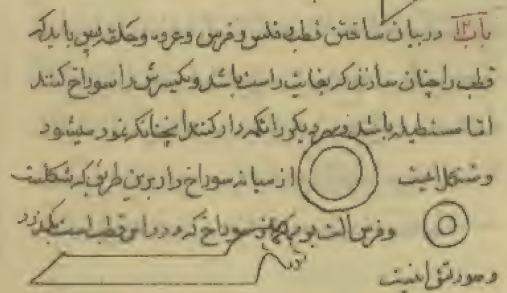 باب ۱۲ در بیان ساختن قطب و فلس و فرس و عروه و حلقه پس باید که
قطب را چنان سازند که بغایت راست باشد و یکسرش را سوراخ کنند
اما مستطیل باشد و سر دیگر را نگه دار کنند چنانکه نمود میشود
و شکل اینست از میانه سوراخ دارد برین طریق که شکلست
و فرس آلت بود که در سوراخ که در راس قطب است بگذرد
و صورتش اینست